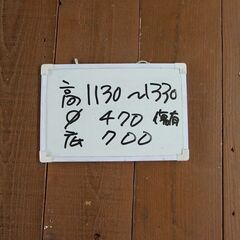 高 1130~1330
φ 470
広 700